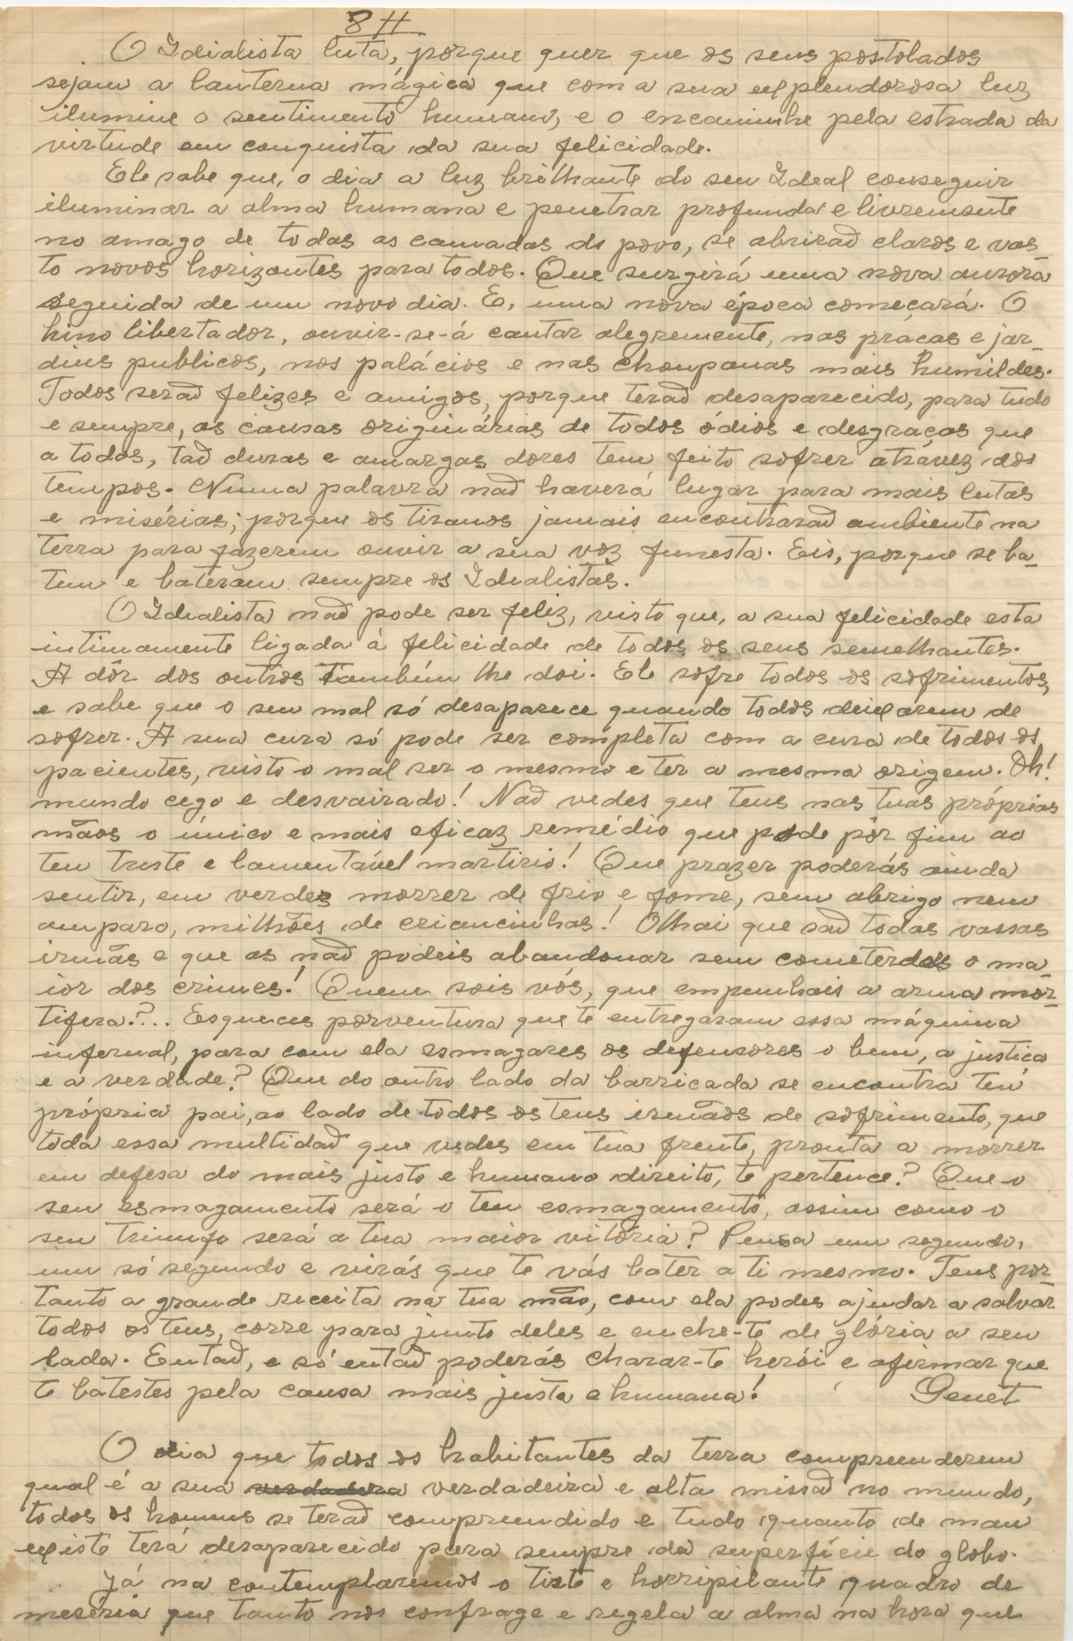 8H
O Idialista luta, porque quer que os seus postolados
sejam a lanterna mágica que com a sua explendorosa luz
ilumine o sentimento humano, e o encaminhe pela estrada da
virtude em conquista da sua felicidade.
Ele sabe que, o dia a luz brilhante do seu Ideal conseguir
iluminar a alma humana e penetrar profunda e livremente
no amago de todas as camadas do povo, se abrirão claros e vas-
to novos horizontes para todos. Que surgirá uma nova aurora
seguida de um novo dia. E, uma nova época começará. O
hino libertador, ouvir-se-á cantar alegremente, nas praças e jar-
dins publicos, nos palácios e nas choupanas mais humildes.
Todos serão felizes e amigos, porque terão desaparecido, para tudo
e sempre, as causas originárias de todos ódios e desgraças que
a todos, tão duras e amargas dores tem feito sofrer atravez dos
tempos. Numa palavra não haverá lugar para mais lutas
e misérias; porque os tiranos jamais encontrarão ambiente na
terra para fazerem ouvir a sua voz funesta. Eis, porque se ba-
tem e bateram sempre os Idealistas.
O Idealista não pode ser feliz, visto que, a sua felicidade esta
intimamente ligada á felicidade de todos os seus semelhantes.
A dôr dos outros também lhe doi. Ele sofre todos os sofrimentos,
e sabe que o seu mal só desaparece quando todos deixarem de
sofrer. A sua cura só pode ser completa com a cura de todos os
pacientes, visto o mal ser o mesmo e ter a mesma origem. Oh!
mundo cego e desvairado! Não vedes que tens nas tuas próprias
mãos o único e mais eficaz remédio que pode pôr fim ao
teu triste e lamentável martirio! Que prazer poderás ainda
sentir, em verdes morrer de frio e fome, sem abrigo nem
amparo, milhões de criancinhas! Olhai que são todas vossas
irmãs e que as não podeis abandonar sem cometerdes o ma-
ior dos crimes! Quem sois vós, que empunhais a arma mor-
tifera?... Esqueces porventura que te entregaram essa máquina
infernal, para com ela esmagares os defensores o bem, a justiça
e a verdade? Que do outro lado da barricada se encontra teu
própria pai, ao lado de todos os teus irmãos de sofrimento, que
toda essa multidão que vedes em tua frente, pronta a morrer
em defesa do mais justo e humano direito, te pertence? Que o
seu esmagamento será o teu esmagamento, assim como o
seu triunfo será a tua maior vitória? Pensa um segundo,
um só segundo e virás que te vás bater a ti mesmo. Tens por-
tanto a grande receita na tua mão, com ela podes ajudar a salvar
todos os teus, corre para junto deles e enche-te de glória a seu
lado. Então, e só então poderás charar-te herói e afirmar que
te batestes pela causa mais justa e humana! Genet
O dia que todos os habitantes da terra compreenderem
qual é a sua verdadera verdadeira e alta missão no mundo,
todos os homens se terão compreendido e tudo quanto de mau
existe terá desaparecido para sempre da superfície do globo.
Já na contemplaremos o tiste e horripilante quadro de
meséria que tanto nos confrage e regela a alma na hora que